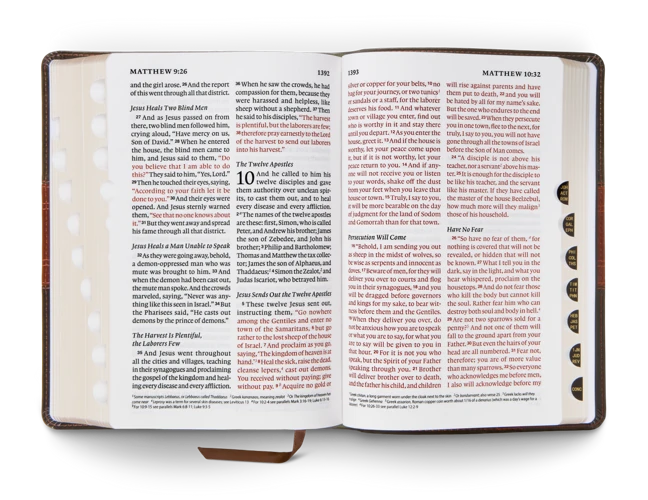 MATTHEW 9:26
1392
and the girl arose. 26 And the report
of this went through all that district.
Jesus Heals Two Blind Men
27 And as Jesus passed on from
there, two blind men followed him,
crying aloud, "Have mercy on us,
Son of David." 28 When he entered
the house, the blind men came to
him, and Jesus said to them, "Do
you believe that I am able to do
this?" They said to him, "Yes, Lord."
29 Then he touched their eyes, saying,
"According to your faith let it be
done to you." 30 And their eyes were
opened. And Jesus sternly warned
them, "See that no one knows about
it." 31 But they went away and spread
his fame through all that district.
Jesus Heals a Man Unable to Speak
32 As they were going away, behold,
a demon-oppressed man who was
mute was brought to him. 33 And
when the demon had been cast out,
the mute man spoke. And the crowds
marveled, saying, "Never was any-
thing like this seen in Israel." 34 But
the Pharisees said, "He casts out
demons by the prince of demons."
The Harvest Is Plentiful,
the Laborers Few
35 And Jesus went throughout
all the cities and villages, teaching
in their synagogues and proclaiming
the gospel of the kingdom and heal-
ing every disease and every affliction.
36 When he saw the crowds, he had
compassion for them, because they
were harassed and helpless, like
sheep without a shepherd. 37 Then
he said to his disciples, "The harvest
is plentiful, but the laborers are few;
38 therefore pray earnestly to the Lord
of the harvest to send out laborers
into his harvest."
The Twelve Apostles
10 And he called to him his
twelve disciples and gave
them authority over unclean spir-
its, to cast them out, and to heal
every disease and every affliction.
2 The names of the twelve apostles
are these: first, Simon, who is called
Peter, and Andrew his brother; James
the son of Zebedee, and John his
brother; 3 Philip and Bartholomew;
Thomas and Matthew the tax collec-
tor; James the son of Alphaeus, and
Thaddaeus; 4 Simon the Zealot, and
Judas Iscariot, who betrayed him.
Jesus Sends Out the Twelve Apostles
5 These twelve Jesus sent out,
instructing them, "Go nowhere
among the Gentiles and enter no
town of the Samaritans, 6 but go
rather to the lost sheep of the house
of Israel. 7 And proclaim as you go,
saying, 'The kingdom of heaven is at
hand.' 8 Heal the sick, raise the dead,
cleanse lepers, cast out demons.
You received without paying; give
without pay. 9 Acquire no gold or
1393
MATTHEW 10:32
silver or copper for your belts, 10 no
bag for your journey, or two tunics
or sandals or a staff, for the laborer
deserves his food. 11 And whatever
town or village you enter, find out
who is worthy in it and stay there
until you depart. 12 As you enter the
house, greet it. 13 And if the house is
worthy, let your peace come upon
it, but if it is not worthy, let your
peace return to you. 14 And if any-
one will not receive you or listen
to your words, shake off the dust
from your feet when you leave that
house or town. 15 Truly, I say to you,
it will be more bearable on the day
of judgment for the land of Sodom
and Gomorrah than for that town.
Persecution Will Come
16 "Behold, I am sending you out
as sheep in the midst of wolves, so
be wise as serpents and innocent as
doves. 17 Beware of men, for they will
deliver you over to courts and flog
you in their synagogues, 18 and you
will be dragged before governors
and kings for my sake, to bear wit-
ness before them and the Gentiles.
19 When they deliver you over, do
not be anxious how you are to speak
or what you are to say, for what you
are to say will be given to you in
that hour. 20 For it is not you who
speak, but the Spirit of your Father
speaking through you. 21 Brother
will deliver brother over to death,
and the father his child, and children
will rise against parents and have
them put to death, 22 and you will
be hated by all for my name's sake.
But the one who endures to the end
will be saved. 23 When they persecute
you in one town, flee to the next, for
truly, I say to you, you will not have
gone through all the towns of Israel
before the Son of Man comes.
24 "A disciple is not above his
teacher, nor a servant above his mas-
ter. 25 It is enough for the disciple to
be like his teacher, and the servant
like his master. If they have called
the master of the house Beelzebul,
how much more will they malign
those of his household.
Have No Fear
26 "So have no fear of them, for
nothing is covered that will not be
revealed, or hidden that will not
be known. 27 What I tell you in the
dark, say in the light, and what you
hear whispered, proclaim on the
housetops. 28 And do not fear those
who kill the body but cannot kill
the soul. Rather fear him who can
destroy both soul and body in hell.
29 Are not two sparrows sold for a
penny? And not one of them will
fall to the ground apart from your
Father. 30 But even the hairs of your
head are all numbered. 31 Fear not,
therefore; you are of more value
than many sparrows. 32 So everyone
who acknowledges me before men,
I also will acknowledge before my